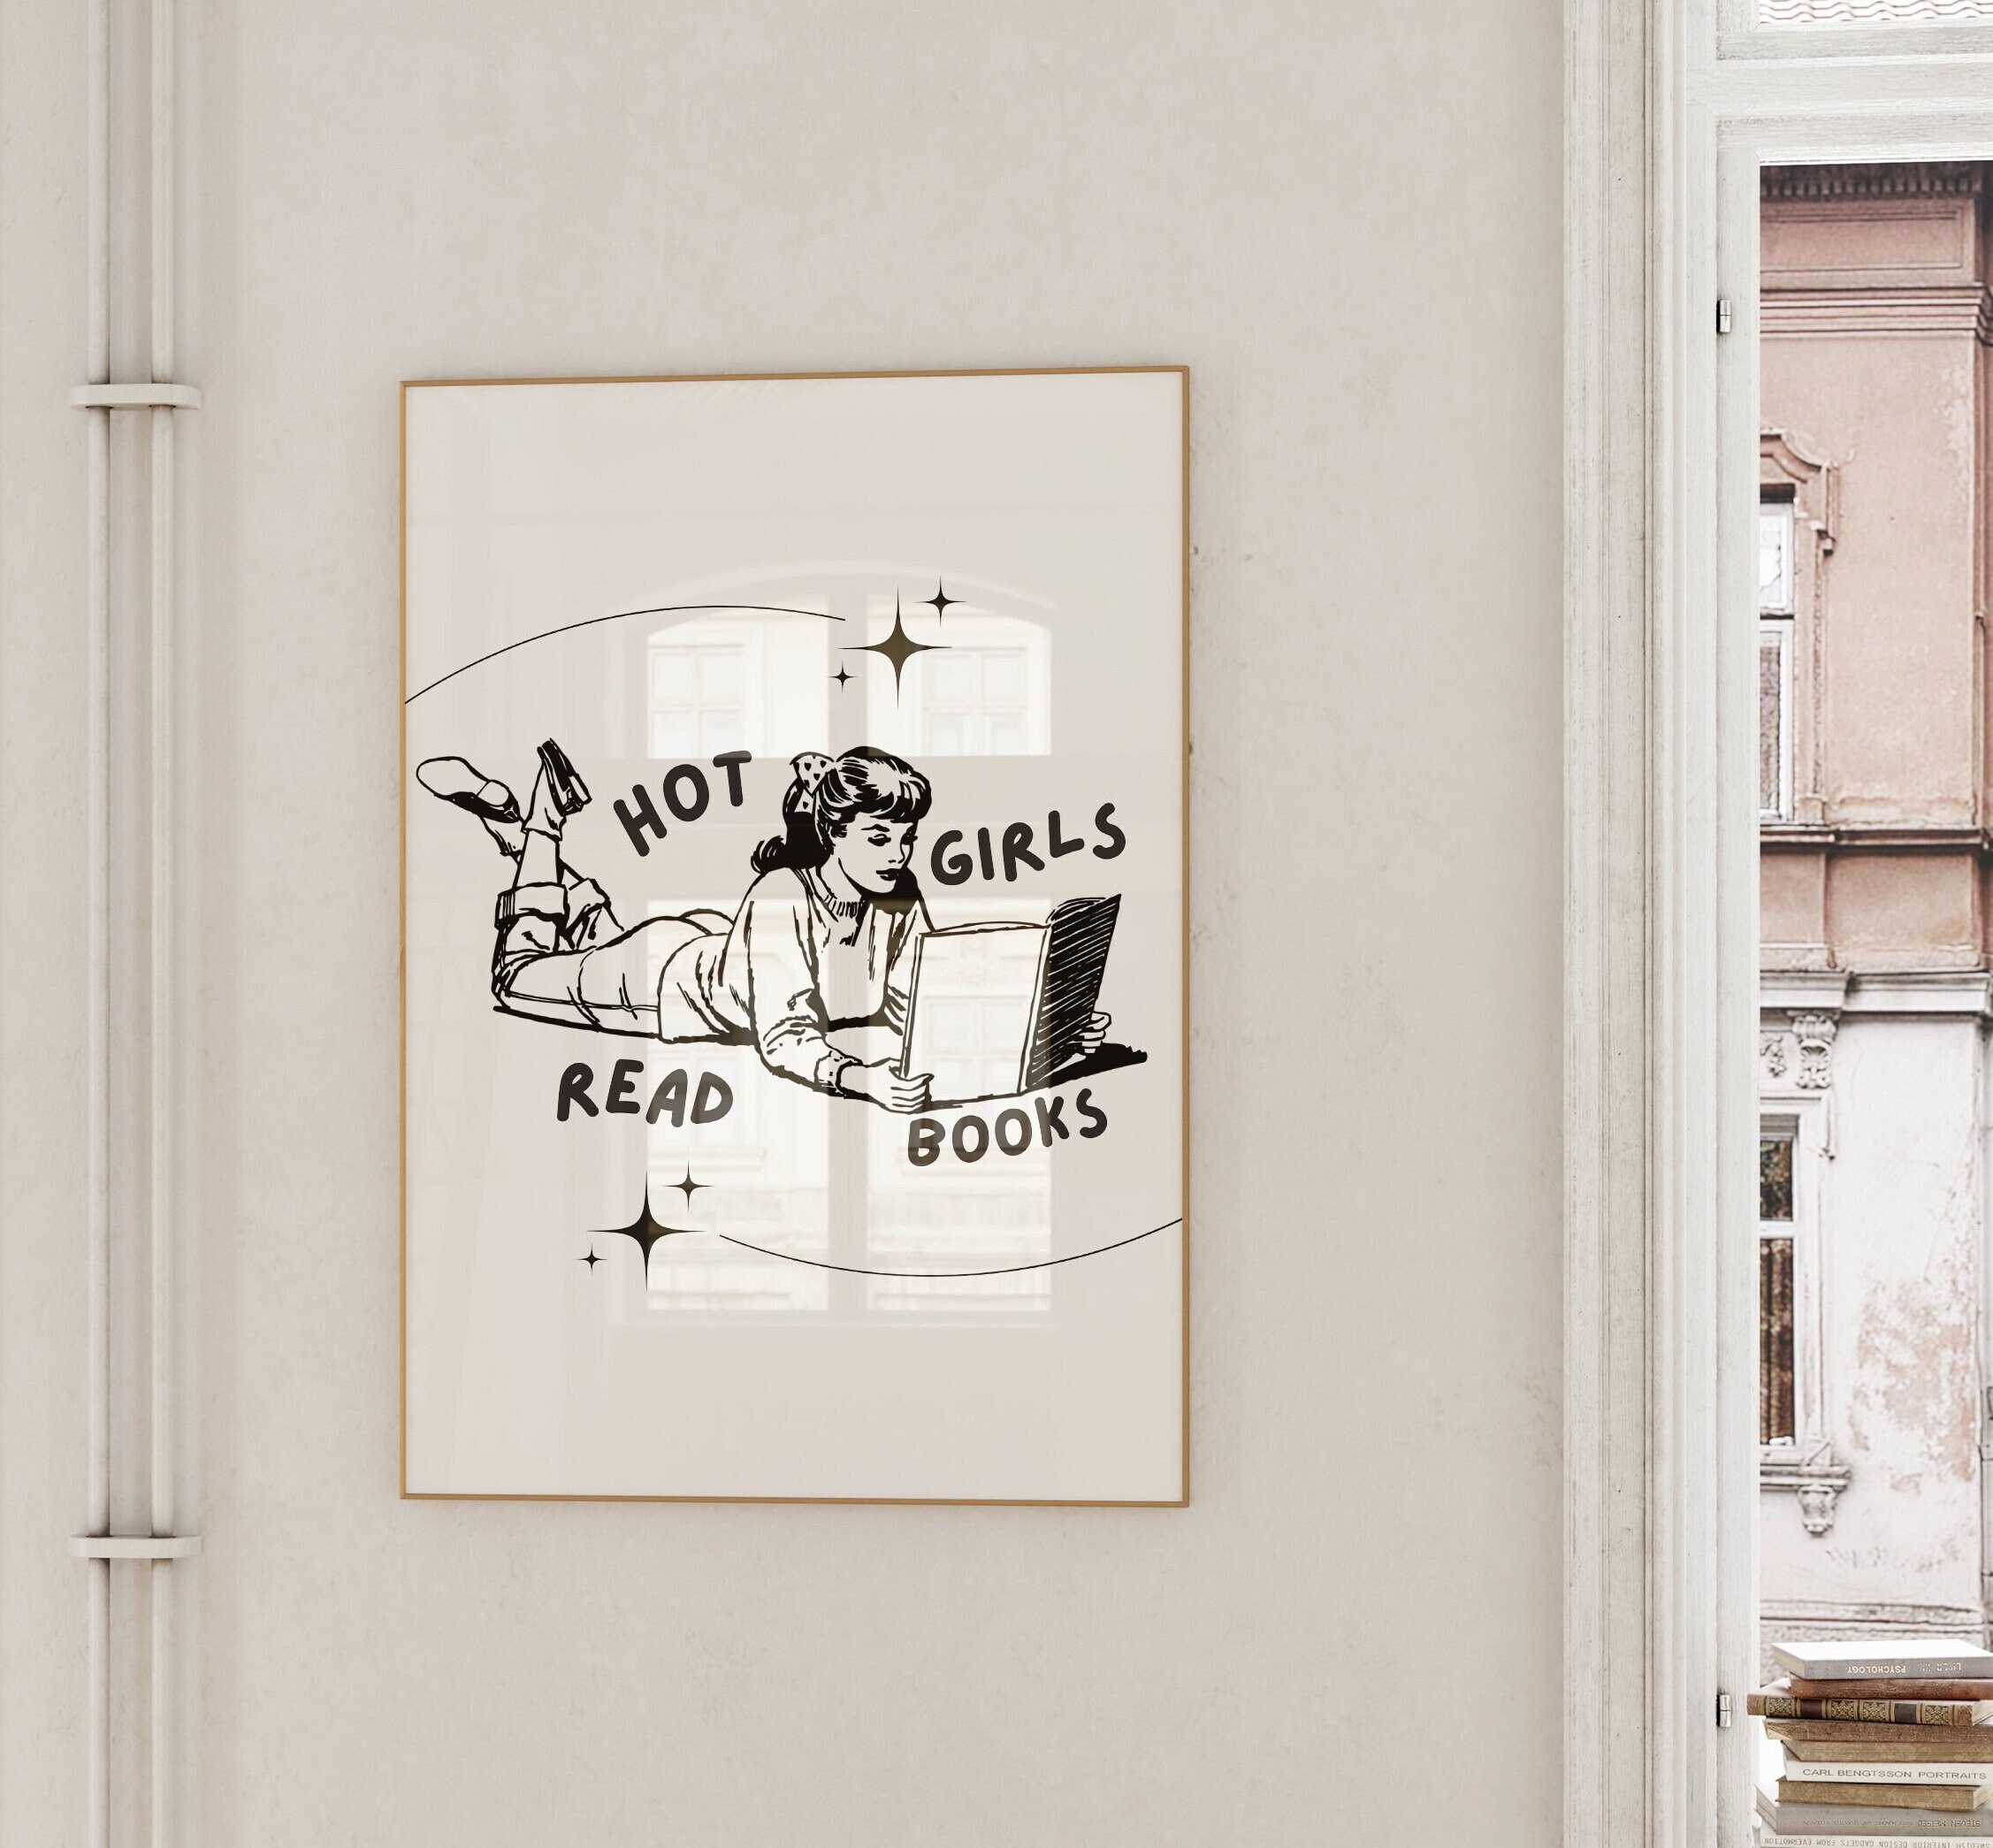 HOT
GIRLS
READ
BOOKS
PSYCHOLOGY
CARL BENGTSSON PORTRAITS
STEVEN MEISEL